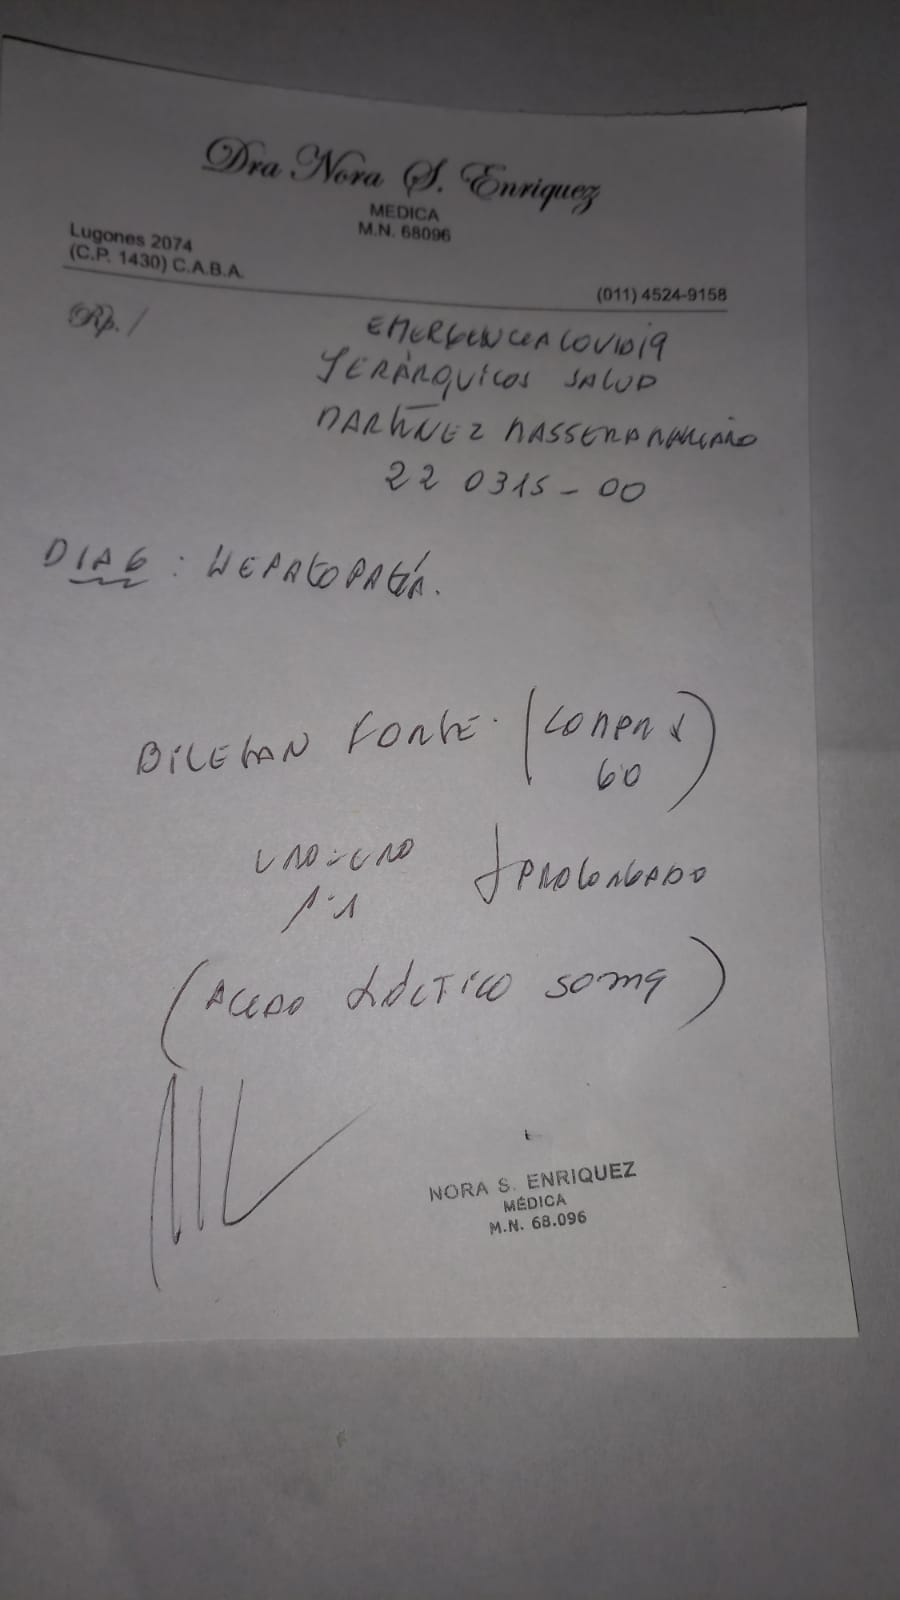 Dra Nora S. Enriquez
MEDICA
M.N. 68096
Lugones 2074
(C.P. 1430) C.A.B.A.
(011) 4524-9158
Rp. /
EMERGENCIA COVID19
JERÁRQUICOS SALUD
MARTÍNEZ MASSERA MARIANO
22 0315-00
DIAG: HEPATOPATÍA.
BILETAN FORTE. (COMPR X
60)
UNO-UNO
1-1
T PROLONGADO
(ACIDO TIÓCTICO 50mg)
NORA S. ENRIQUEZ
MÉDICA
M.N. 68.096